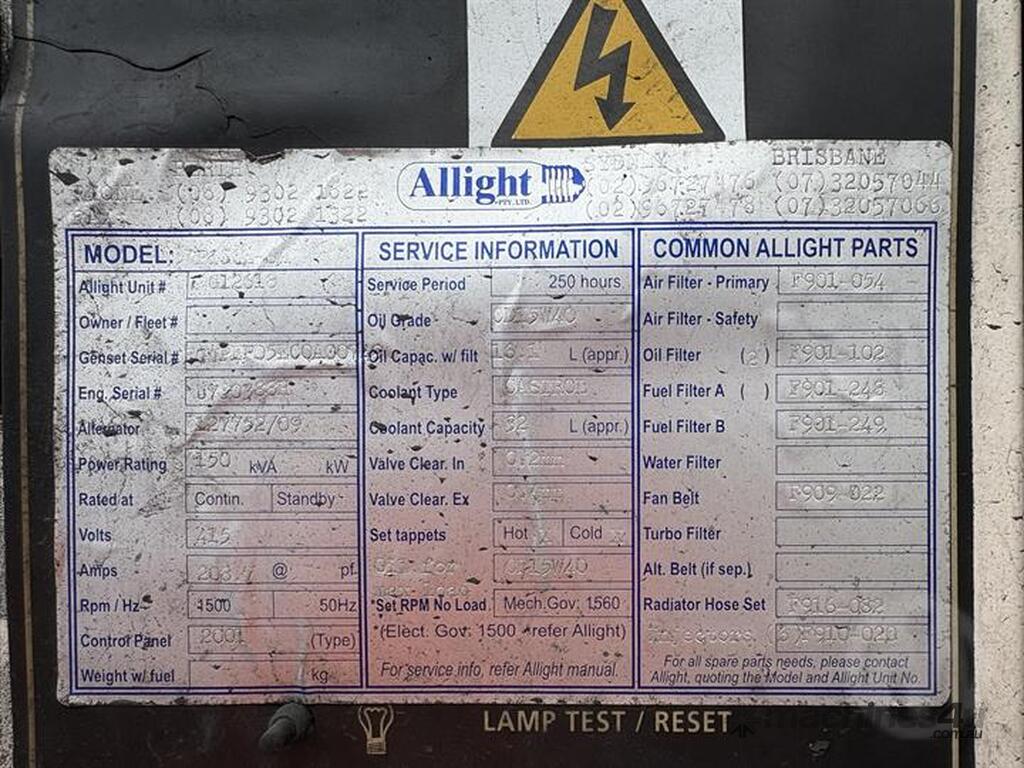 (08) 9302 1822
(08) 9302 1322
Allight
PTY. LTD.
SYDNEY
(02)96727476
(02)96727478
BRISBANE
(07)32057044
(07)32057066
MODEL:
Allight Unit #
Owner / Fleet #
Genset Serial #
Eng. Serial #
Alternator
Power Rating 150 kVA kW
Rated at Contin. Standby
Volts 415
Amps @ pf.
Rpm / Hz 1500 50Hz
Control Panel 2001 (Type)
Weight w/fuel kg
SERVICE INFORMATION
Service Period 250 hours
Oil Grade 15W40
Oil Capac. w/ filt L (appr.)
Coolant Type CASTROL
Coolant Capacity 32 L (appr.)
Valve Clear. In 0.2mm
Valve Clear. Ex
Set tappets Hot Cold
15W40
*Set RPM No Load Mech.Gov: 1560
*(Elect. Gov: 1500 - refer Allight)
For service info, refer Allight manual.
COMMON ALLIGHT PARTS
Air Filter - Primary F901-054
Air Filter - Safety
Oil Filter (2) F901-102
Fuel Filter A ( ) F901-248
Fuel Filter B F901-249
Water Filter
Fan Belt F909-022
Turbo Filter
Alt. Belt (if sep.)
Radiator Hose Set F916-082
Injectors F910-020
For all spare parts needs, please contact
Allight, quoting the Model and Allight Unit No.
LAMP TEST / RESET
machines4u
.com.au